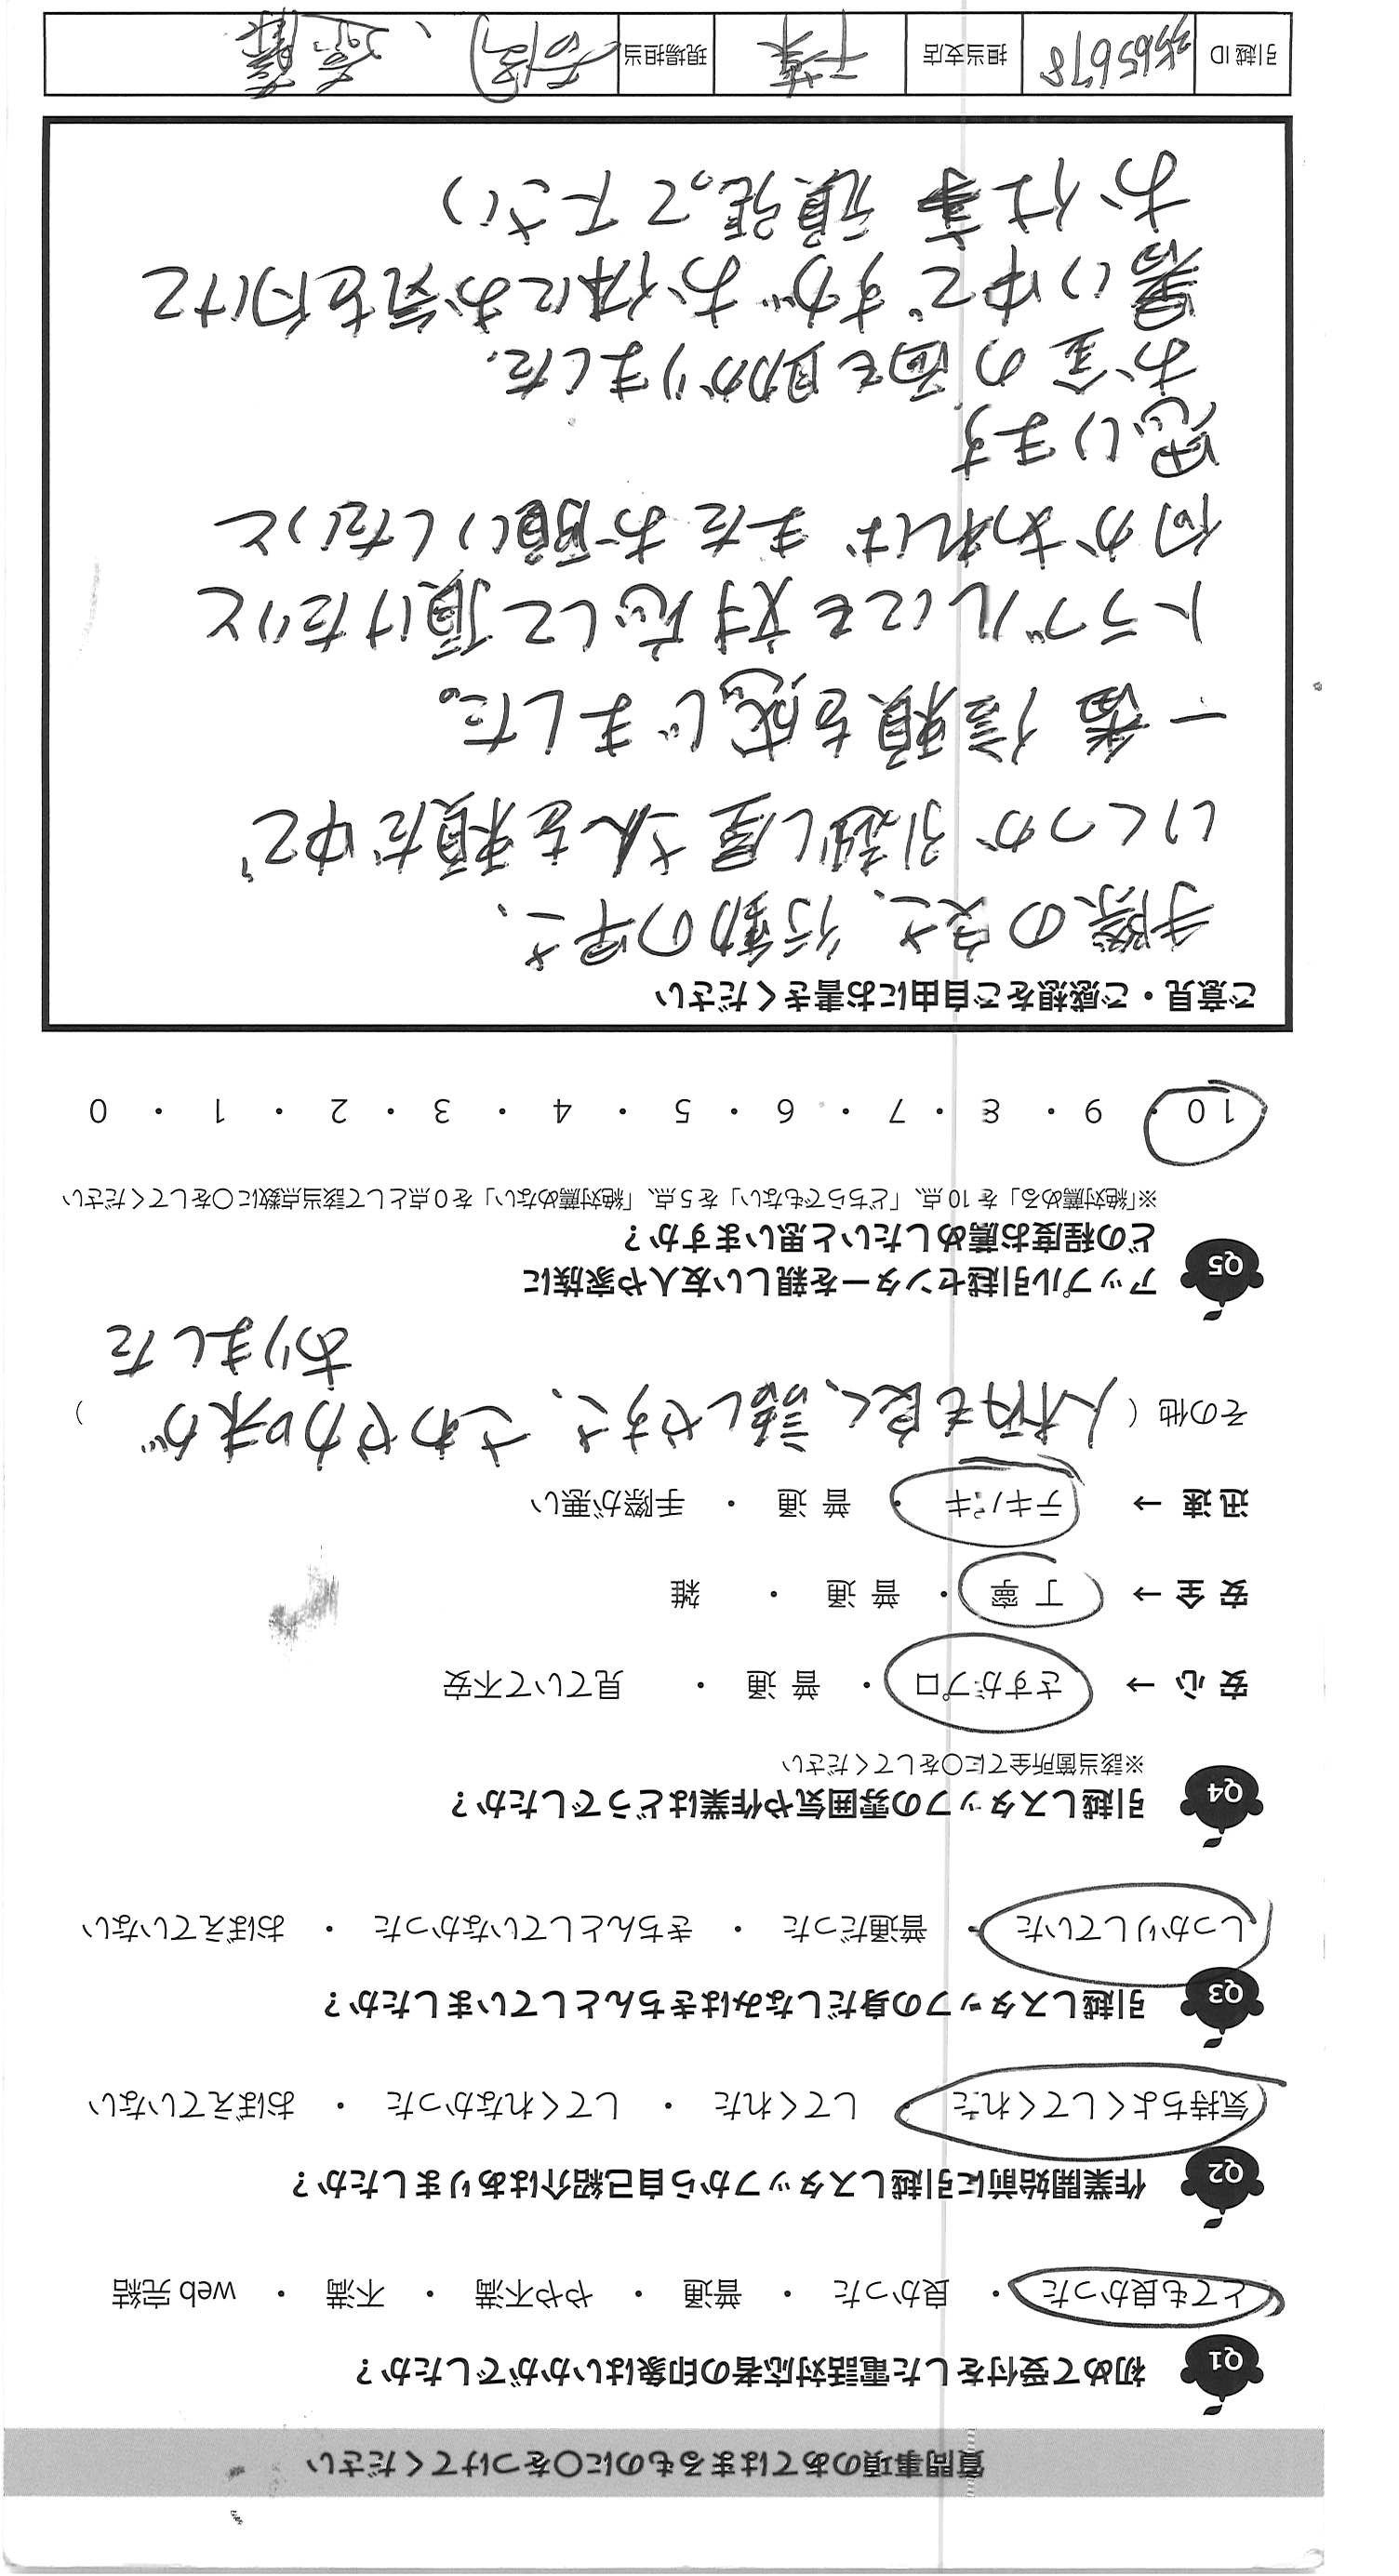 質問事項のあてはまるものに〇をつけてください
Q1 初めて受付をした電話対応者の印象はいかがでしたか？
とても良かった ・ 良かった ・ 普通 ・ やや不満 ・ 不満 ・ web 完結
Q2 作業開始前に引越しスタッフから自己紹介はありましたか？
気持ちよくしてくれた ・ してくれた ・ してくれなかった ・ おぼえていない
Q3 引越しスタッフの身だしなみはきちんとしていましたか？
しっかりしていた ・ 普通だった ・ きちんとしていなかった ・ おぼえていない
Q4 引越しスタッフの雰囲気や作業はどうでしたか？
※該当箇所全てに〇をしてください
安 心 → さすがプロ ・ 普 通 ・ 見ていて不安
安 全 → 丁 寧 ・ 普 通 ・ 雑
迅 速 → テキパキ ・ 普 通 ・ 手際が悪い
その他（ 人柄も良く、話しやすさ、さわやか味が ）
ありました
Q5 アップル引越センターを親しい友人や家族に
どの程度お薦めしたいと思いますか？
※「絶対薦める」を 10 点、「どちらでもない」を 5 点、「絶対薦めない」を 0 点として該当点数に〇をしてください
10 ・ 9 ・ 8 ・ 7 ・ 6 ・ 5 ・ 4 ・ 3 ・ 2 ・ 1 ・ 0
ご意見・ご感想をご自由にお書きください
手際の良さ、行動の早さ、
いくつか引越し屋さんを頼だ中で
一番信頼を感じました。
トラブルにも対応して頂けたりと
何かあれば またお願いしたいと
思います
お金の面も助かりました.
暑い中ですが お体にお気を付けて
お仕事 頑張って下さい)
引越 ID 3565678 担当支店 千葉 現場担当